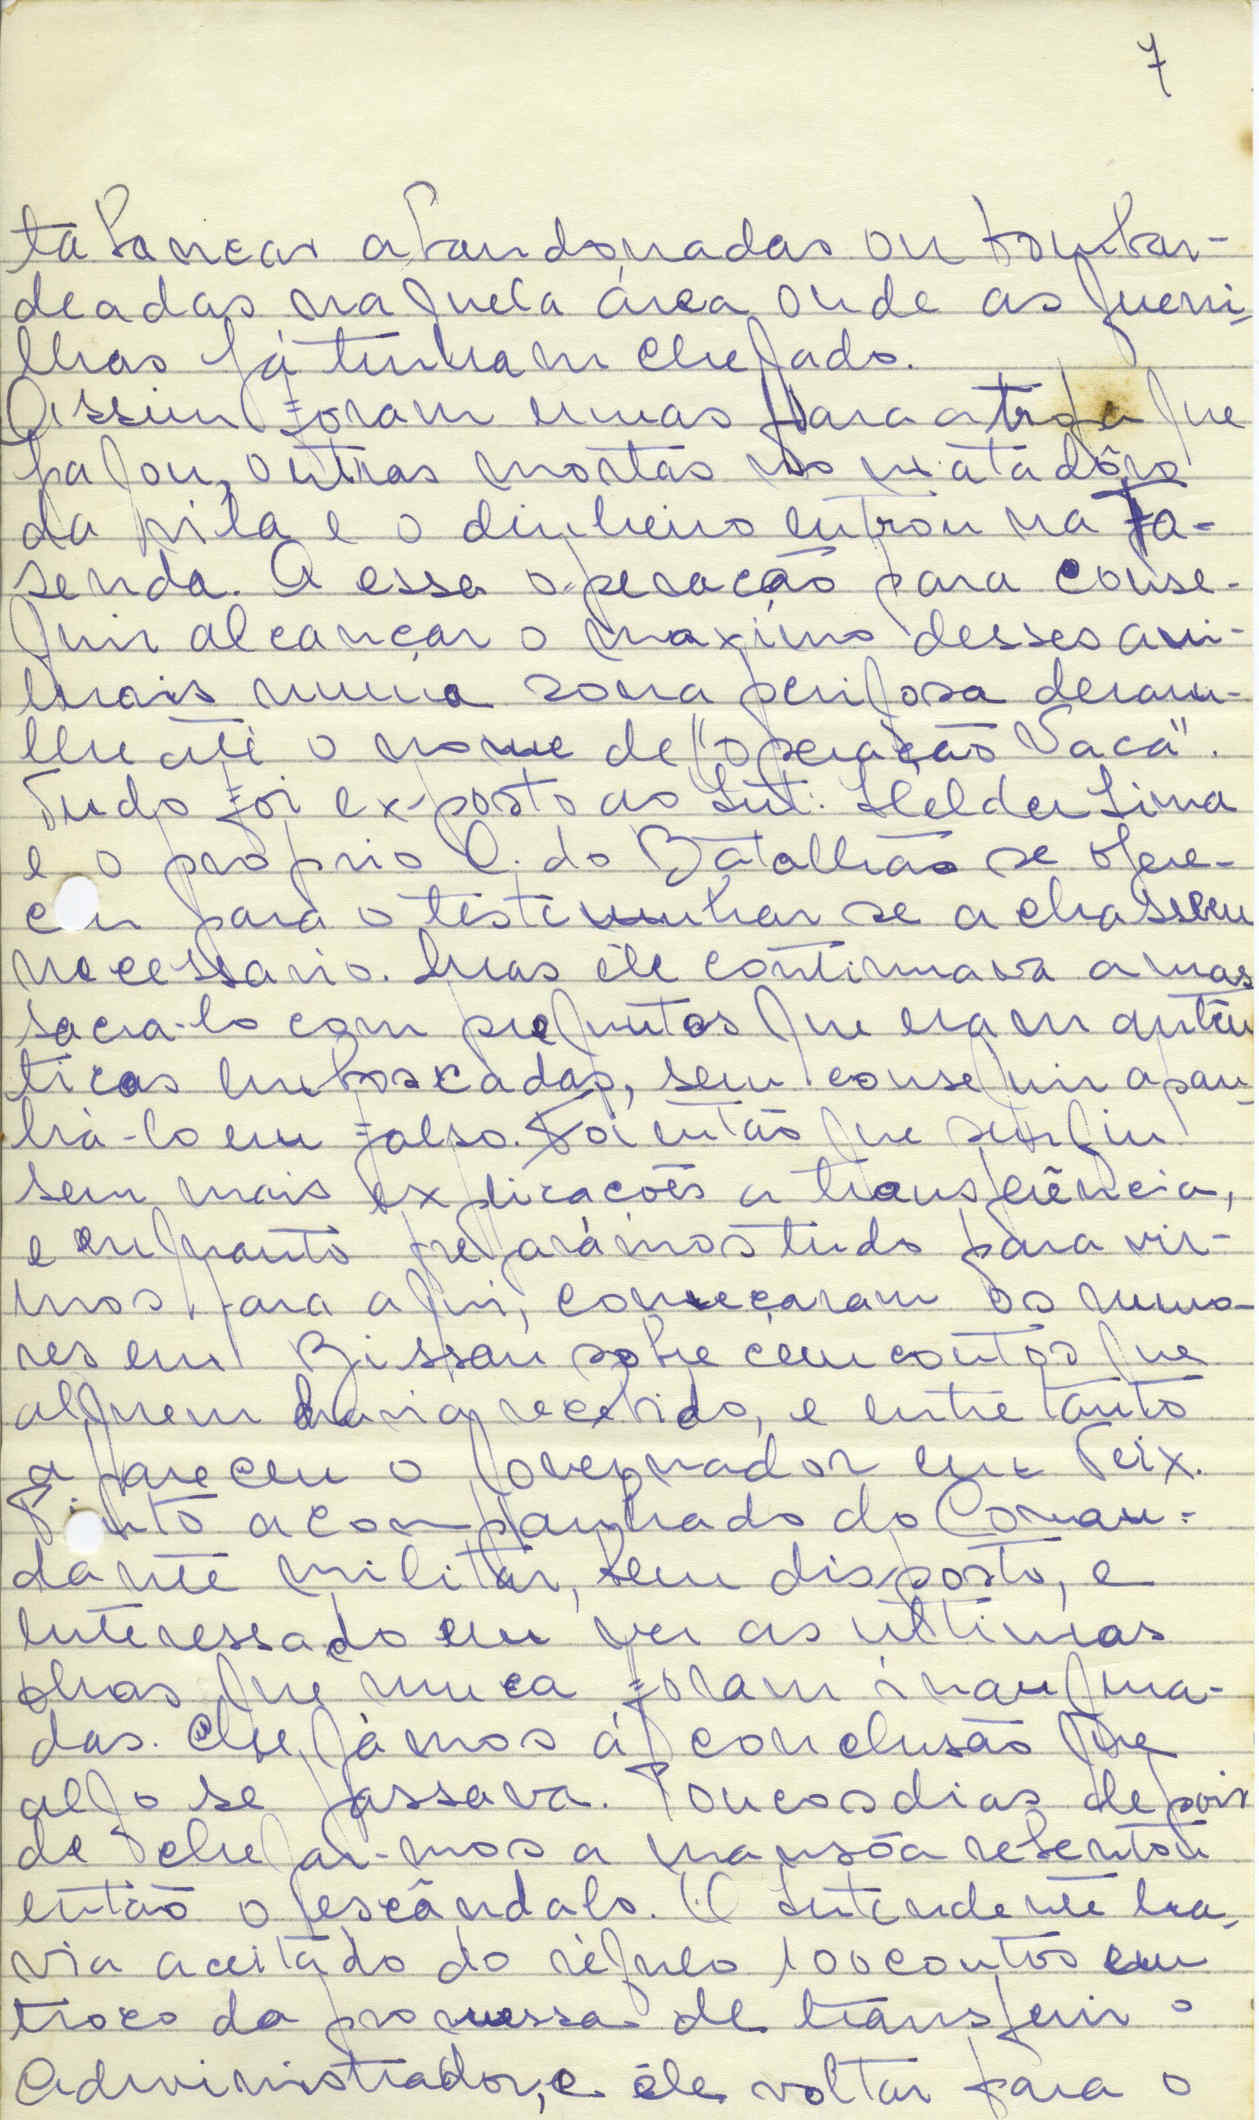 7
tabancas abandonadas ou bombar-
deadas naquela área onde as guerri-
lhas já tinham chegado.
Assim foram umas para a tropa que
pagou, outras mortas no matadôro
da vila e o dinheiro entrou na Fa-
senda. A essa operacão para conse-
guir alcançar o maximo desses ani-
mais numa zona perigosa deram-
lhe até o nome de "operação Vaca".
Tudo foi exposto ao Int. Helder Lima
e o proprio C. do Batalhão se ofere-
ceu para o testemunhar se achassem
necessario. Mas êle continuava a mas
sacra-lo com preguntas que eram autên
ticas emboscadas, sem conseguir apan-
há-lo em falso. Foi então que surgiu
sem mais explicacões a transferência,
e enquanto preparámos tudo para vir-
mos para aqui, começaram os rumo-
res em Bissau sobre cem contos que
alguem havia recebido, e entretanto
apareceu o Governador em Teix.
Pinto acompanhado do Coman-
dante militar, bem disposto, e
interessado em ver as ultimas
obras que nunca foram inaugura-
das. Chegámos á conclusão que
algo se passava. Poucos dias depois
de chegar-mos a mansôa rebentou
então o escândalo. O Intendente ha-
via aceitado do régulo 100 contos em
troco da promessa de transferir o
Administrador, e êle voltar para o